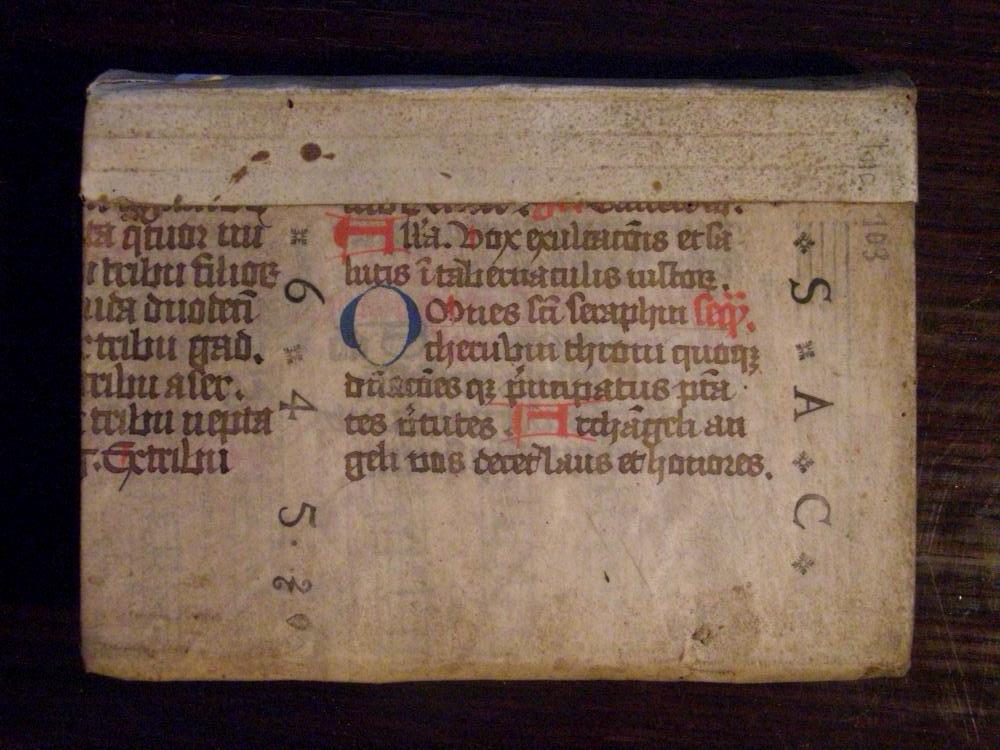 ta qtuor nu
tribu filior
uda duodeci
tribu gad.
tribu aser.
tribu nepta
Ex tribu
Alla. Vox exultacōis et sa
lutis ī tabernaculis iustor.
Omnes sci seraphin seq.
cherubin throni quoqz
dn̄acōes qz pͥncipatus ptā
tes vͥtutes. Archāgeli an
geli vos decet laus et honores.
6
4
5.
S A C
103